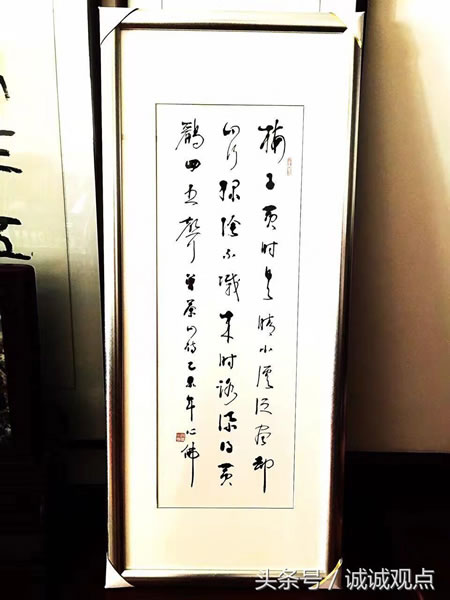 梅子黄时日日晴小溪泛尽却
山行绿陰不減来时路添得黄
鸝四五聲 曾茶山诗乙未年心佛
三五
头条号 / 诚诚观点